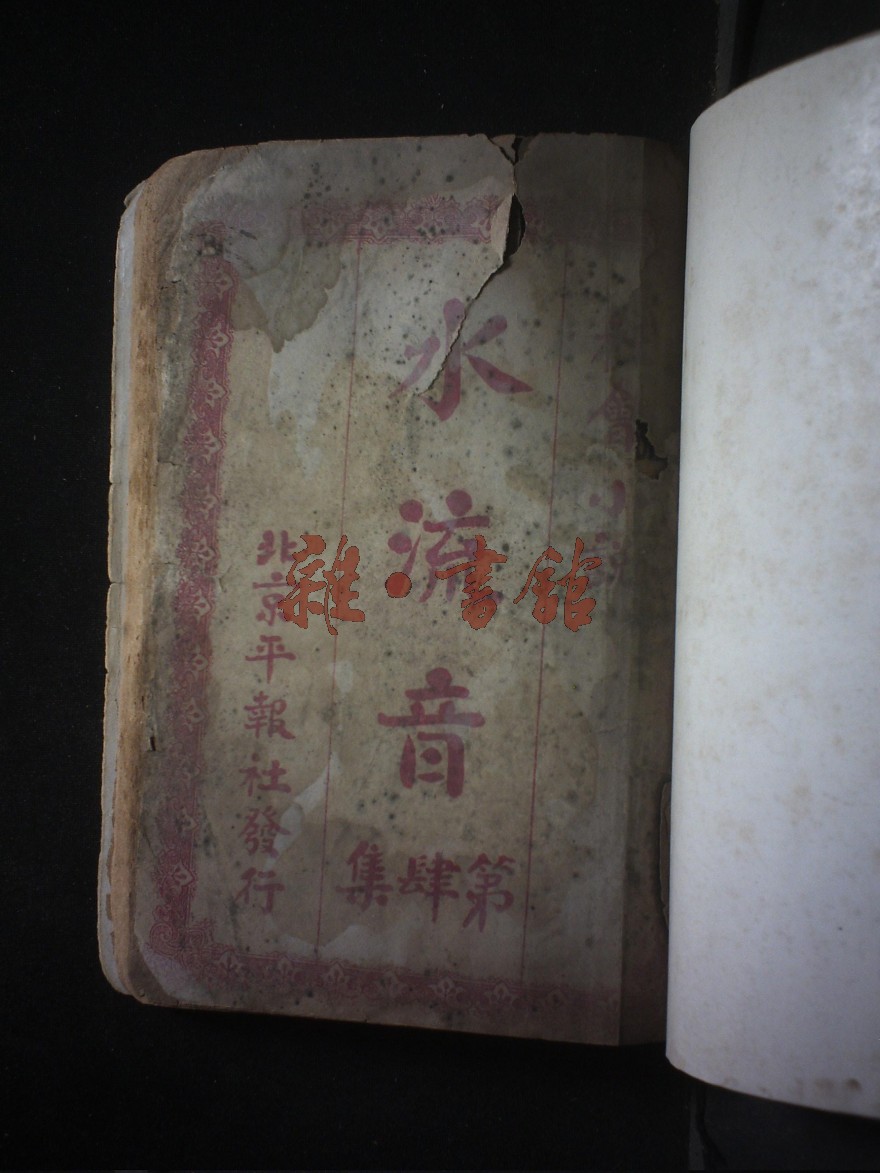 會小說
水流音
第肆集
北京平報社發行
雜·書館